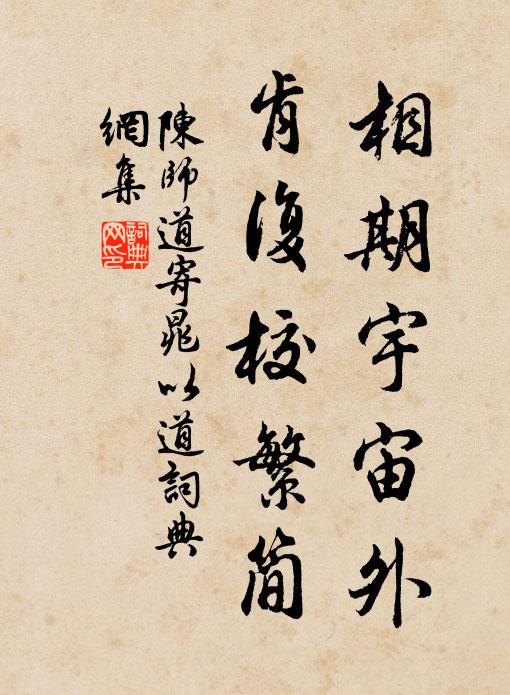 相期宇宙外
肯復校繁简
陳師道寄晁以道詞典
網集
詞典
网印